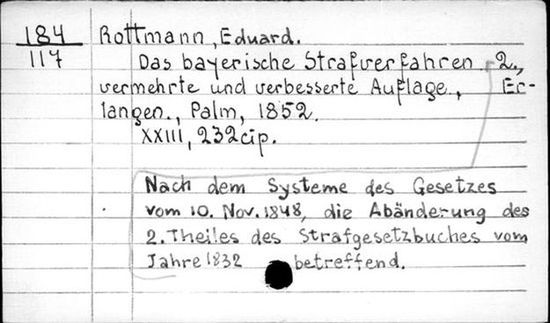 184 Rottmann, Eduard.
117 Das bayerische Strafverfahren. 2.,
vermehrte und verbesserte Auflage., Er-
langen., Palm, 1852.
XXIII, 232 cip.
Nach dem Systeme des Gesetzes
vom 10. Nov. 1848, die Abänderung des
2. Theiles des Strafgesetzbuches vom
Jahre 1832 betreffend.